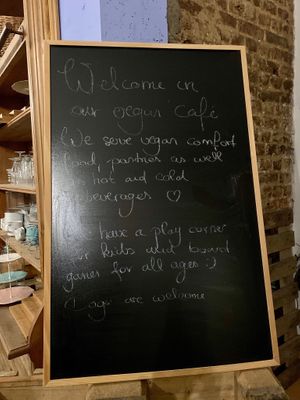 Welcome in
our vegan café
We serve vegan comfort
food, pastries as well
as hot and cold
beverages ♡
We have a play corner
for kids and board
games for all ages :)
Dogs are welcome